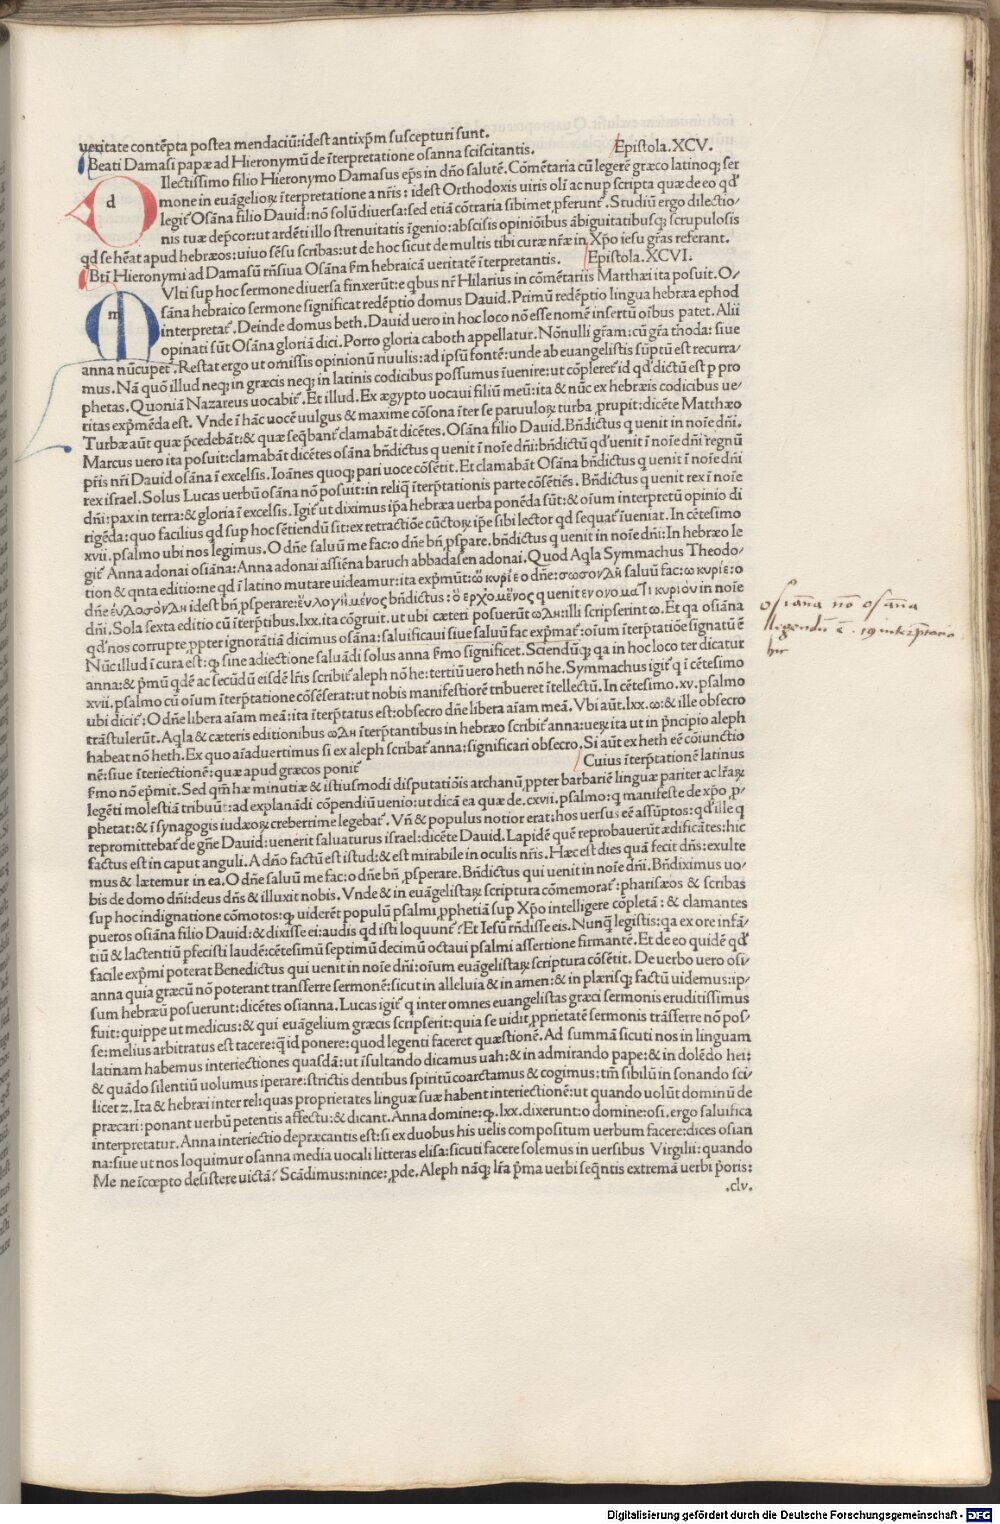 ueritate contēpta postea mendaciū:idest antixp̄m suscepturi sunt.
Beati Damasi papæ ad Hieronymū de īterpretatione osanna sciscitantis. Epistola.XCV.
dIlectissimo filio Hieronymo Damasus ep̄s in dn̄o salutē. Cōmētaria cū legerē græco latinoq; ser
mone in euāgelioꝝ īterpretatione a nr̄is: idest Orthodoxis uiris oli ac nup scripta quæ de eo qd̄
legit̄ Osāna filio Dauid: nō solū diuersa: sed etiā cōtraria sibimet ꝓferunt. Studiū ergo dilectio/
nis tuæ dep̄cor:ut ardēti illo strenuitatis īgenio: abscisis opiniōibus ābiguitatibusq; scrupulosis
qd se hēat apud hebræos: uiuo sēsu scribas: ut de hoc sicut de multis tibi curæ nr̄æ in Xp̄o iesu gr̄as referant.
Bti Hieronymi ad Damasū rn̄siua Osāna f̄m hebraicā ueritatē īterpretantis. Epistola.XCVI.
mVlti sup hoc sermone diuersa finxerūt: e qbus nr̄ Hilarius in cōmētariis Matthæi ita posuit. O/
sāna hebraico sermone significat redēptio domus Dauid. Primū redēptio lingua hebræa ephod
interpretat̄. Deinde domus beth. Dauid uero in hoc loco nō esse nomē insertū oībus patet. Alii
opinati sūt Osāna gloriā dici. Porro gloria caboth appellatur. Nōnulli gr̄am: cū gr̄a thoda: siue
anna nūcupet̄. Restat ergo ut omissis opinionū riuulis: ad ipsū fontē: unde ab euangelistis sūptū est recurra/
mus. Nā quō illud neq; in græcis neq; in latinis codicibus possumus īuenire: ut cōpleret̄ id qd̄ dictū est p pro
phetas. Quoniā Nazareus uocabit̄. Et illud. Ex ægypto uocaui filiū meū: ita & nūc ex hebræis codicibus ue/
ritas exp̄mēda est. Vnde ī hāc uocē uulgus & maxime cōsona īter se paruuloꝝ turba ꝓrupit: dicēte Matthæo
Turbæ aūt quæ p̄cedebāt: & quæ seq̄bant̄ clamabāt dicētes. Osāna filio Dauid. Bn̄dictus q uenit in noīe dn̄i.
Marcus uero ita posuit: clamabāt dicētes osāna bn̄dictus q uenit ī noīe dn̄i: bn̄dictū qd̄ uenit ī noīe dn̄i regnū
pr̄is nr̄i Dauid osāna ī excelsis. Ioānes quoq; pari uoce cōsētit. Et clamabāt Osāna bn̄dictus q uenit ī noīe dn̄i
rex israel. Solus Lucas uerbū osāna nō posuit: in reliq̄ īterp̄tationis parte cōsētiēs. Bn̄dictus q uenit rex ī noīe
dn̄i: pax in terra: & gloria ī excelsis. Igit̄ ut diximus ip̄a hebræa uerba ponēda sūt: & oīum interpretū opinio di
rigēda: quo facilius qd sup hoc sētiendū sit: ex retractiōe cūctoꝝ ip̄e sibi lector qd sequat̄ īueniat. In cētesimo
xvii. psalmo ubi nos legimus. O dn̄e saluū me fac: o dn̄e bn̄ ꝓspare. bn̄dictus q uenit in noīe dn̄i: In hebræo le
git̄ Anna adonai osiāna: Anna adonai assiēna baruch abbadasen adonai. Quod Aqla Symmachus Theodo/
tion & qnta editio: ne qd ī latino mutare uideamur: ita exp̄mūt: ὦ κυρίε o dn̄e: σωσονδη saluū fac: ω κυρίε: o
dn̄e ἐυδοσόνδη idest bn̄ ꝓsperare: ἐυλογημένος bn̄dictus: ὁ ερχόμενος q uenit εν ονοματι κυριου in noīe
dn̄i. Sola sexta editio cū īterp̄tibus.lxx.ita cōgruit. ut ubi cæteri posuerūt ωδη: illi scripserint ω. Et qa osiāna
qd̄ nos corrupte ꝓpter ignorātiā dicimus osāna: saluificaui siue saluū fac exp̄mat̄: oīum īterp̄tatiōe signatū ē
Nūc illud ī cura est: ꝙ sine adiectione saluādi solus anna f̄mo significet. Sciendūq; qa in hoc loco ter dicatur
anna: & p̄mū qdē ac secūdū eisdē lr̄is scribit̄ aleph nō he: tertiū uero heth nō he. Symmachus igit̄ q ī cētesimo
xvii. psalmo cū oīum īterp̄tatione cōsēserat: ut nobis manifestiorē tribueret ītellectū. In cētesimo. xv. psalmo
ubi dicit̄: O dn̄e libera aīam meā: ita īterp̄tatus est: obsecro dn̄e libera aīam meā. Vbi aūt.lxx.ω: & ille obsecro
trāstulerūt. Aqla & cæteris editionibus ωδη īterp̄tantibus in hebræo scribit̄ anna: ueꝝ ita ut in p̄ncipio aleph
habeat nō heth. Ex quo aīaduertimus si ex aleph scribat̄ anna: significari obsecro. Si aūt ex heth eē cōiunctio
nē: siue īteriectionē: quæ apud græcos ponit̄ Cuius īterp̄tationē latinus
f̄mo nō ep̄mit. Sed qm̄ hæ minutiæ & istiusmodi disputatiōis archanū ꝓpter barbariē linguæ pariter ac lr̄aꝝ
legēti molestiā tribuūt: ad explanādi cōpendiū uenio: ut dicā ea quæ de.cxvii.psalmo: q manifeste de xp̄o ꝓ/
phetat: & ī synagogis iudæoꝝ creberrime legebat̄. Vn̄ & populus notior erat: hos uersus eē assūptos: qd̄ ille q
repromittebat̄ de gn̄e Dauid: uenerit saluaturus israel: dicēte Dauid. Lapidē quē reprobauerūt ædificātes: hic
factus est in caput anguli. A dn̄o factū est istud: & est mirabile in oculis nr̄is. Hæc est dies quā fecit dn̄s: exulte
mus & lætemur in ea. O dn̄e saluū me fac: o dn̄e bn̄ ꝓsperare. Bn̄dictus qui uenit in noīe dn̄i. Bn̄diximus uo/
bis de domo dn̄i: deus dn̄s & illuxit nobis. Vnde & in euāgelistaꝝ scriptura cōmemorat̄: pharisæos & scribas
sup hoc indignatione cōmotos: ꝙ uiderēt populū psalmi ꝓphetiā sup Xp̄o intelligere cōpletā: & clamantes
pueros osiāna filio Dauid: & dixisse ei: audis qd isti loquunt̄? Et Iesū rn̄disse eis. Nunq̄ legistis: qa ex ore infā/
tiū & lactentiū pfecisti laudē: cētesimū septimū decimū octaui psalmi assertione firmantē. Et de eo quidē qd̄
facile exp̄mi poterat Benedictus qui uenit in noīe dn̄i: oīum euāgelistaꝝ scriptura cōsētit. De uerbo uero osi/
anna quia græcū nō poterant transferre sermonē: sicut in alleluia & in amen: & in plærisq; factū uidemus: ip/
sum hebræū posuerunt: dicētes osianna. Lucas igit̄ q inter omnes euangelistas græci sermonis eruditissimus
fuit: quippe ut medicus: & qui euāgelium græcis scripserit: quia se uidit ꝓprietatē sermonis trāsferre nō pos/
se: melius arbitratus est tacere: q̄ id ponere: quod legenti faceret quæstionē. Ad summā sicuti nos in linguam
latinam habemus interiectiones quasdā: ut īsultando dicamus uah: & in admirando pape: & in dolēdo hei:
& quādo silentiū uolumus iperare: strictis dentibus spiritū coarctamus & cogimus: tm̄ sibilū in sonando sci/
licet z. Ita & hebræi inter reliquas proprietates linguæ suæ habent interiectionē: ut quando uolūt dominū de
præcari: ponant uerbū petentis affectu: & dicant. Anna domine: ꝙ.lxx.dixerunt: o domine: osi. ergo saluifica
interpretatur. Anna interiectio depræcantis est: si ex duobus his uelis compositum uerbum facere: dices osian
na: siue ut nos loquimur osanna media uocali litteras elisa: sicuti facere solemus in uersibus Virgilii: quando
Me ne īcœpto desistere uictā? Scādimus: nince ꝓde. Aleph nāq; lr̄a p̄ma uerbi seq̄ntis extremā uerbi p̄oris:
.clv.
osiāna nō osāna
legendū ē.
hier
Digitalisierung gefördert durch die Deutsche Forschungsgemeinschaft - DFG